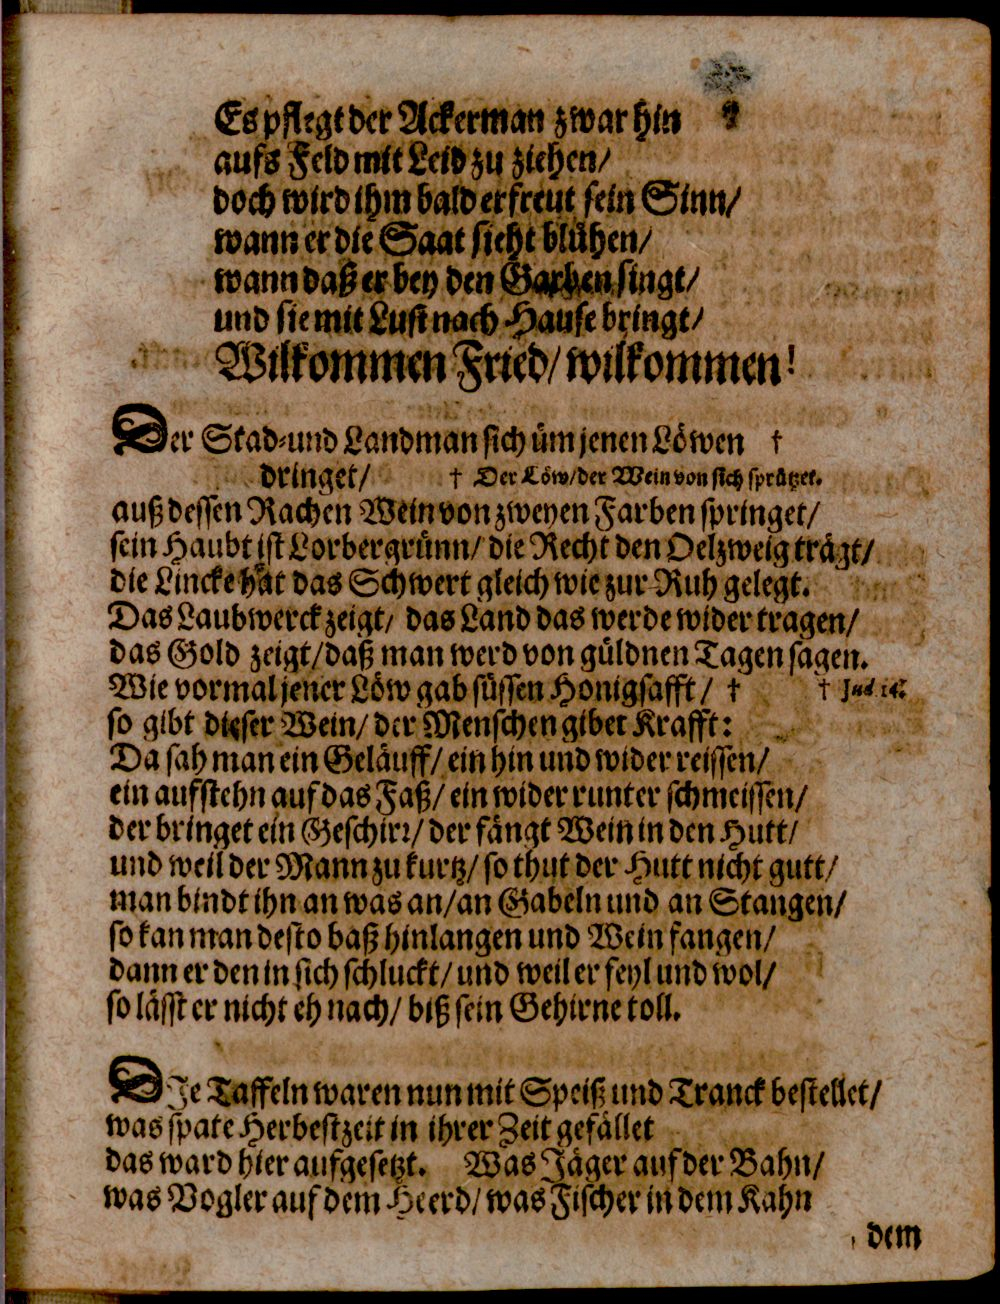 Es pflegt der Ackerman zwar hin
aufs Feld mit Leid zu ziehen/
doch wird ihm bald erfreut sein Sinn/
wann er die Saat sieht blühen/
wann daß er bey den Garben singt/
und sie mit Lust nach Hause bringt/
Wilkommen Fried/ wilkommen!
Der Stad-und Landman sich üm jenen Löwen †
dringet/ † Der Löw/der Wein von sich sprützet.
auß dessen Rachen Wein von zweyen Farben springet/
sein Haubt ist Lorbergrünn/ die Recht den Oelzweig trägt/
die Lincke hat das Schwert gleich wie zur Ruh gelegt.
Das Laubwerck zeigt/ das Land das werde wider tragen/
das Gold zeigt/daß man werd von güldnen Tagen sagen.
Wie vormal jener Löw gab süssen Honigsafft/ † † Jud. 14.
so gibt dieser Wein/ der Menschen gibet Krafft:
Da sah man ein Geläuff/ ein hin und wider reissen/
ein aufstehn auf das Faß/ ein wider runter schmeissen/
der bringet ein Geschirr/ der fängt Wein in den Hutt/
und weil der Mann zu kurtz/ so thut der Hutt nicht gutt/
man bindt ihn an was an/an Gabeln und an Stangen/
so kan man desto baß hinlangen und Wein fangen/
dann er den in sich schluckt/ und weil er feyl und wol/
so lässt er nicht eh nach/ biß sein Gehirne toll.
DIe Taffeln waren nun mit Speiß und Tranck bestellet/
was spate Herbestzeit in ihrer Zeit gefället
das ward hier aufgesetzt. Was Jäger auf der Bahn/
was Vogler auf dem Heerd/ was Fischer in dem Kahn
dem